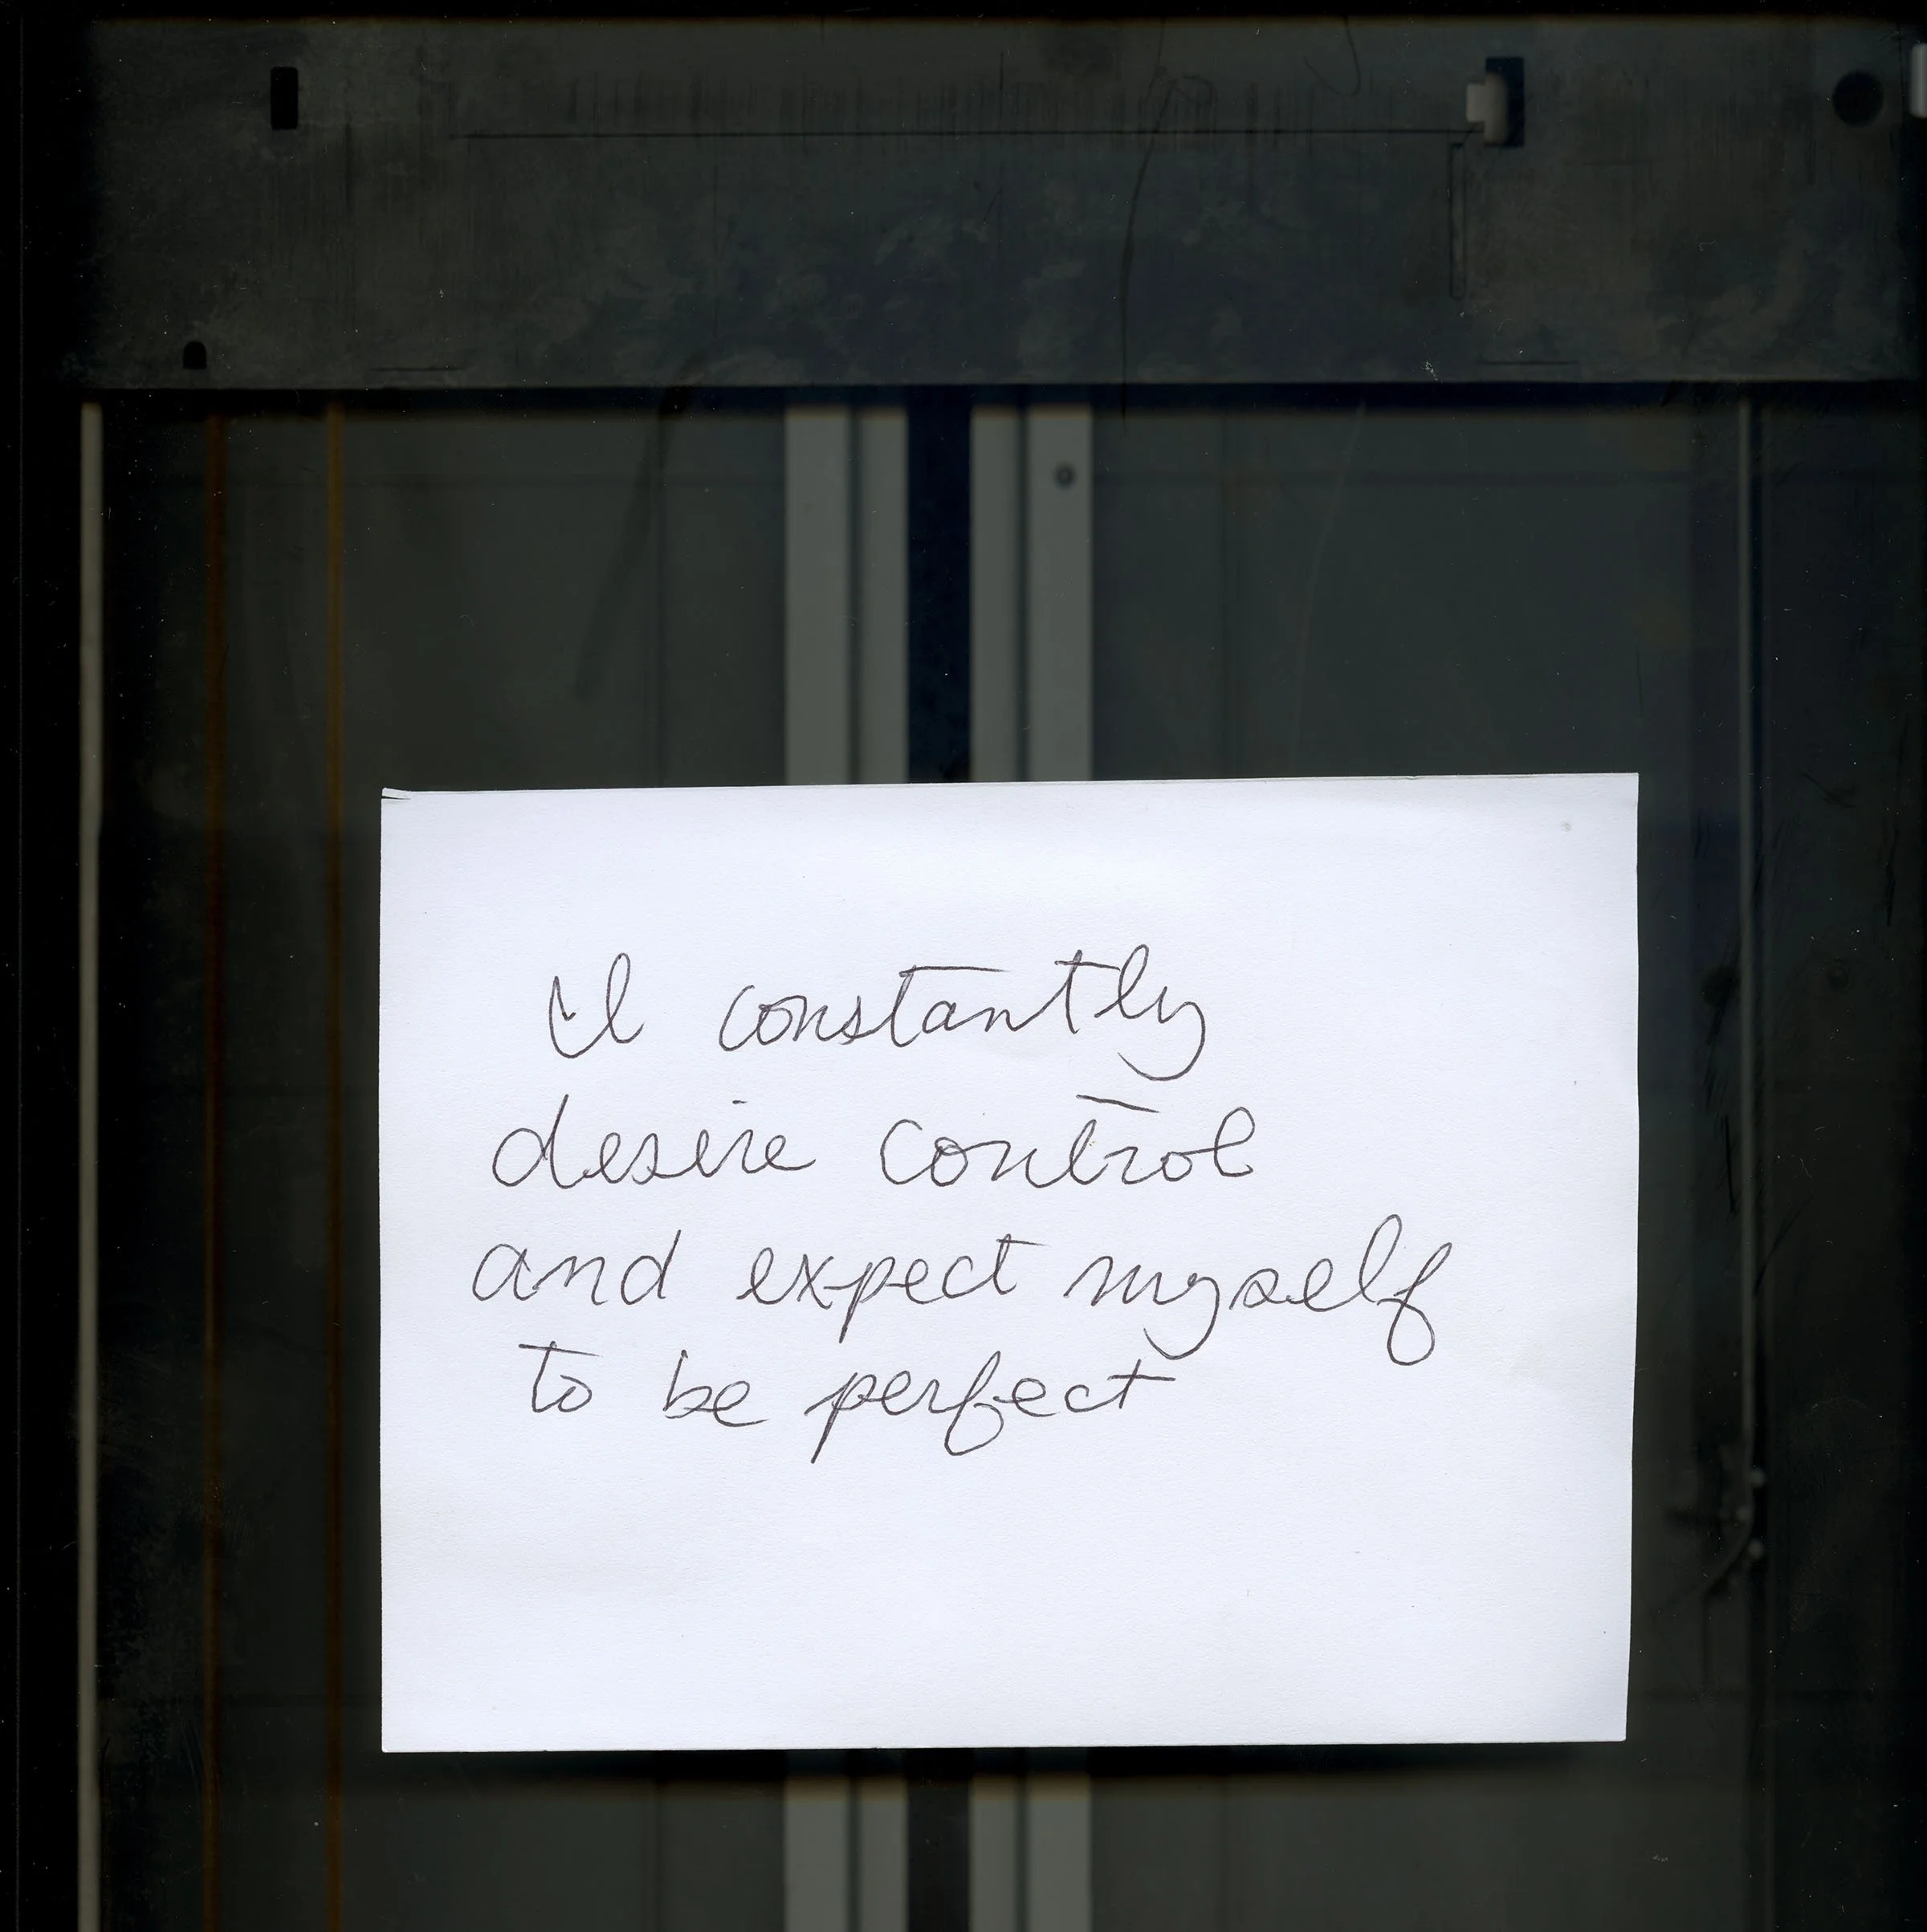 I constantly
desire control
and expect myself
to be perfect